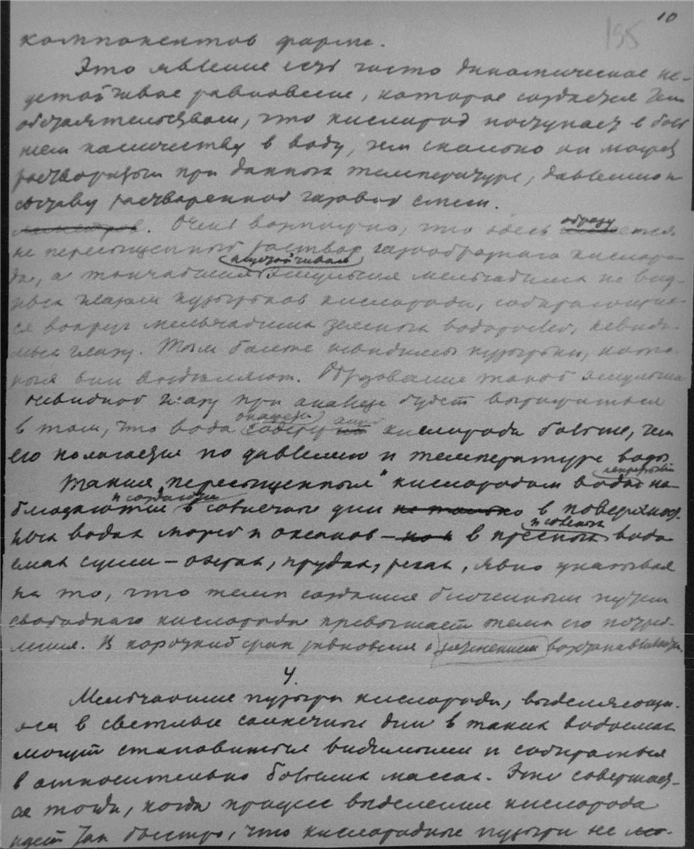 10
195
компонентов форме.
Это явление есть чисто динамическое не-
устойчивое равновесие, которое создается тем
обстоятельством, что кислород поступает в боль
шем количестве в воду, чем сколько он может
раствориться при данных температуре, давлении и
составу растворенной газовой смеси.
Очень возможно, что здесь образу ется
не пересыщенный раствор газообразного кислоро-
да, а тончайшая неустойчивая эмульсия мельчайших не вид-
ных глазом пузырьков кислорода, собирающих-
ся вокруг мельчайших зеленых водорослей, невиди-
мых глазу. Тем более невидимы пузырьки, кото-
рые они выделяют. Образование такой эмульсии
невидной глазу при анализе будет выражаться
в том, что вода содержит кислорода больше, чем
его полагается по давлению и температуре воды.
Такие "пересыщенные" кислородом воды на-
блюдаются и создаются непрерывно в солнечные дни не только в поверхност-
ных водах морей и океанов – но и в пресных и соленых водо
емах суши – озерах, прудах, реках, явно указывая
на то, что темп создания биогенным путем
свободного кислорода превышает темп его погло-
щения. В короткий срок равновесие с
4.
Мельчайшие пузыри кислорода, выделяющи-
еся в светлые солнечные дни в таких водоемах
могут становиться видимыми и собираться
в относительно больших массах. Это совершает-
ся тогда, когда процесс выделения кислорода
идет так быстро, что кислородные пузыри не мо-